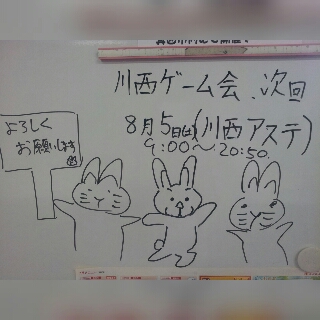 川西ゲーム会、次回
8月5日(土)(川西アステ)
9:00〜20:50
よろしく
お願いします